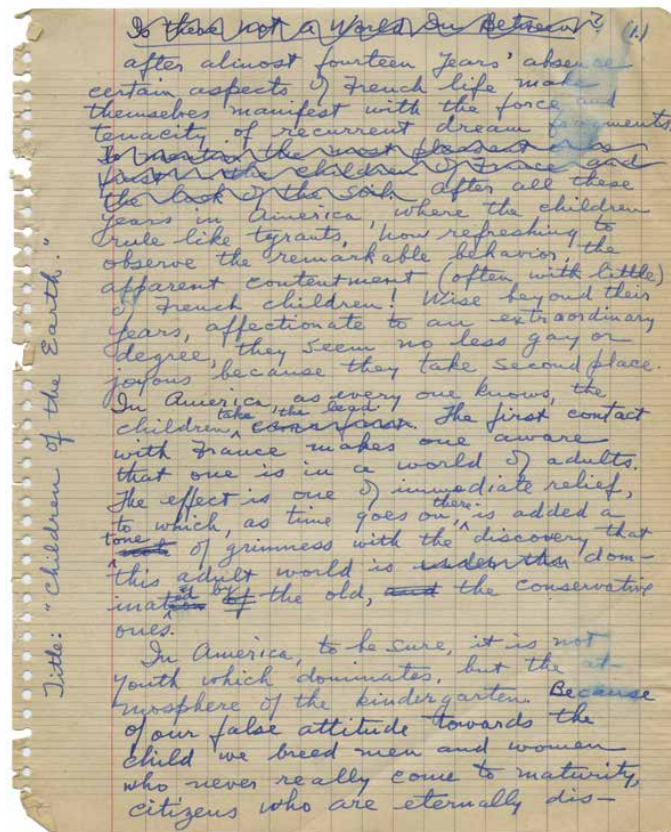 Is there not a World In Between? (1.)
after almost fourteen years' absence
certain aspects of French life make
themselves manifest with the force and
tenacity of recurrent dream fragments
To mention the most pleasant ones
first – the children of France and
the look of the soil. after all these
years in America, where the children
rule like tyrants, how refreshing to
observe the remarkable behavior, the
apparent contentment (often with little)
of French children! Wise beyond their
years, affectionate to an extraordinary
degree, they seem no less gay or
joyous because they take second place.
In America, as every one knows, the
children take the lead. The first contact
with France makes one aware
that one is in a world of adults.
The effect is one of immediate relief,
to which, as time goes on, there is added a
tone of grimness with the discovery that
this adult world is under the dom-
inated by the old, and the conservative
ones.
In America, to be sure, it is not
youth which dominates, but the at-
mosphere of the kindergarten. Because
of our false attitude towards the
child we breed men and women
who never really come to maturity,
citizens who are eternally dis-
Title: "Children of the Earth."